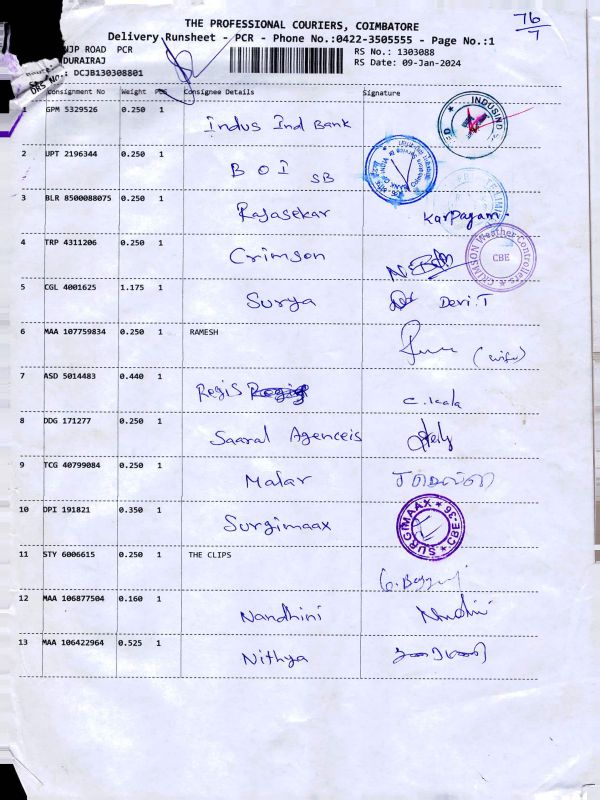 76
7
THE PROFESSIONAL COURIERS, COIMBATORE
Delivery Runsheet - PCR - Phone No.:0422-3505555 - Page No.:1
NJP ROAD PCR
RS No.: 1303088
DURAIRAJ
RS Date: 09-Jan-2024
DRS No.: DCJB130308801
Consignment No Weight PCS Consignee Details Signature
1 GPM 5329526 0.250 1 Indus Ind Bank INDUSIND
2 UPT 2196344 0.250 1 BOI SB
3 BLR 8500088075 0.250 1 Rajasekar Karpagam.
4 TRP 4311206 0.250 1 Crimson CRIMSON Weather Controllers & CBE
5 CGL 4001625 1.175 1 Surya Devi.T
6 MAA 107759834 0.250 1 RAMESH (wife)
7 ASD 5014483 0.440 1 Regis C. kala
8 DDG 171277 0.250 1 Saaral Agenceis
9 TCG 40799084 0.250 1 Malar
10 DPI 191821 0.350 1 Surgimaax SURGIMAAX * CBE-36 *
11 STY 6006615 0.250 1 THE CLIPS
12 MAA 106877504 0.160 1 Nandhini
13 MAA 106422964 0.525 1 Nithya